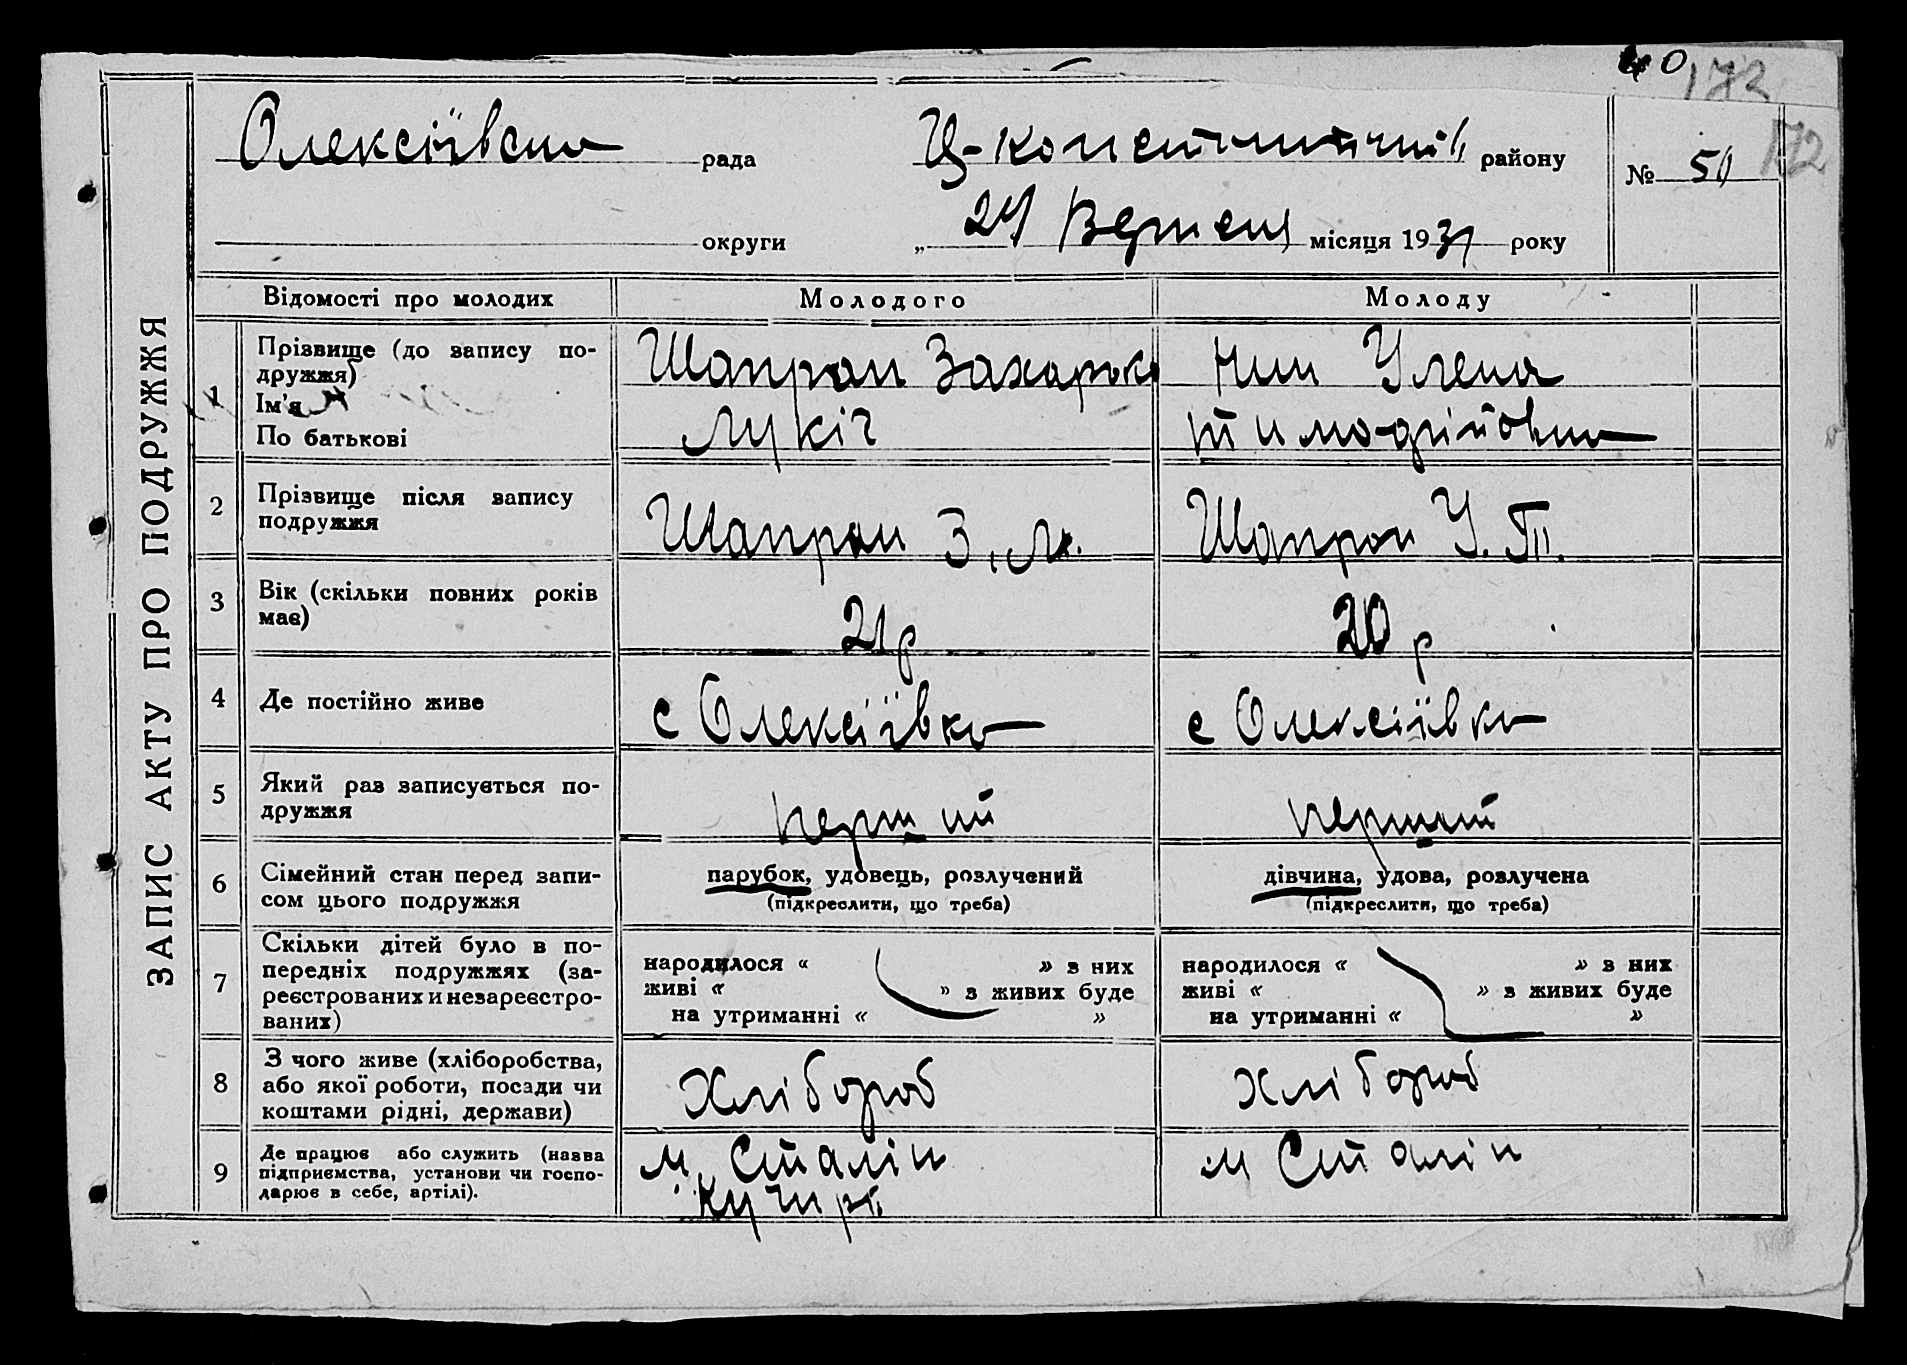 172
Олексіївська рада
Ц-Констянтинів, району
№ 51
172
округи
„ 24 Вересня місяця 1931 року
ЗАПИС АКТУ ПРО ПОДРУЖЖЯ
Відомості про молодих
Молодого
Молоду
1
Прізвище (до запису по-
дружжя)
Ім'я
По батькові
Шапран Захарко
Лукіч
Улена
Тимофійовна
2
Прізвище після запису
подружжя
Шапран З. Л.
Шапран У. Т.
3
Вік (скільки повних років
має)
21 р
20 р
4
Де постійно живе
с Олексіївка
с Олексіївка
5
Який раз записується по-
дружжя
перший
перший
6
Сімейний стан перед запи-
сом цього подружжя
парубок, удовець, розлучений
(підкреслити, що треба)
дівчина, удова, розлучена
(підкреслити, що треба)
7
Скільки дітей було в по-
передніх подружжях (за-
реєстрованих и незареєстро-
ваних)
народилося « » з них
живі « » з живих буде
на утриманні « »
народилося « » з них
живі « » з живих буде
на утриманні « »
8
З чого живе (хліборобства,
або якої роботи, посади чи
коштами рідні, держави)
Хлібороб
Хлібороб
9
Де працює або служить (назва
підприємства, установи чи госпо-
дарює в себе, артілі).
м. Сталін
м Сталін